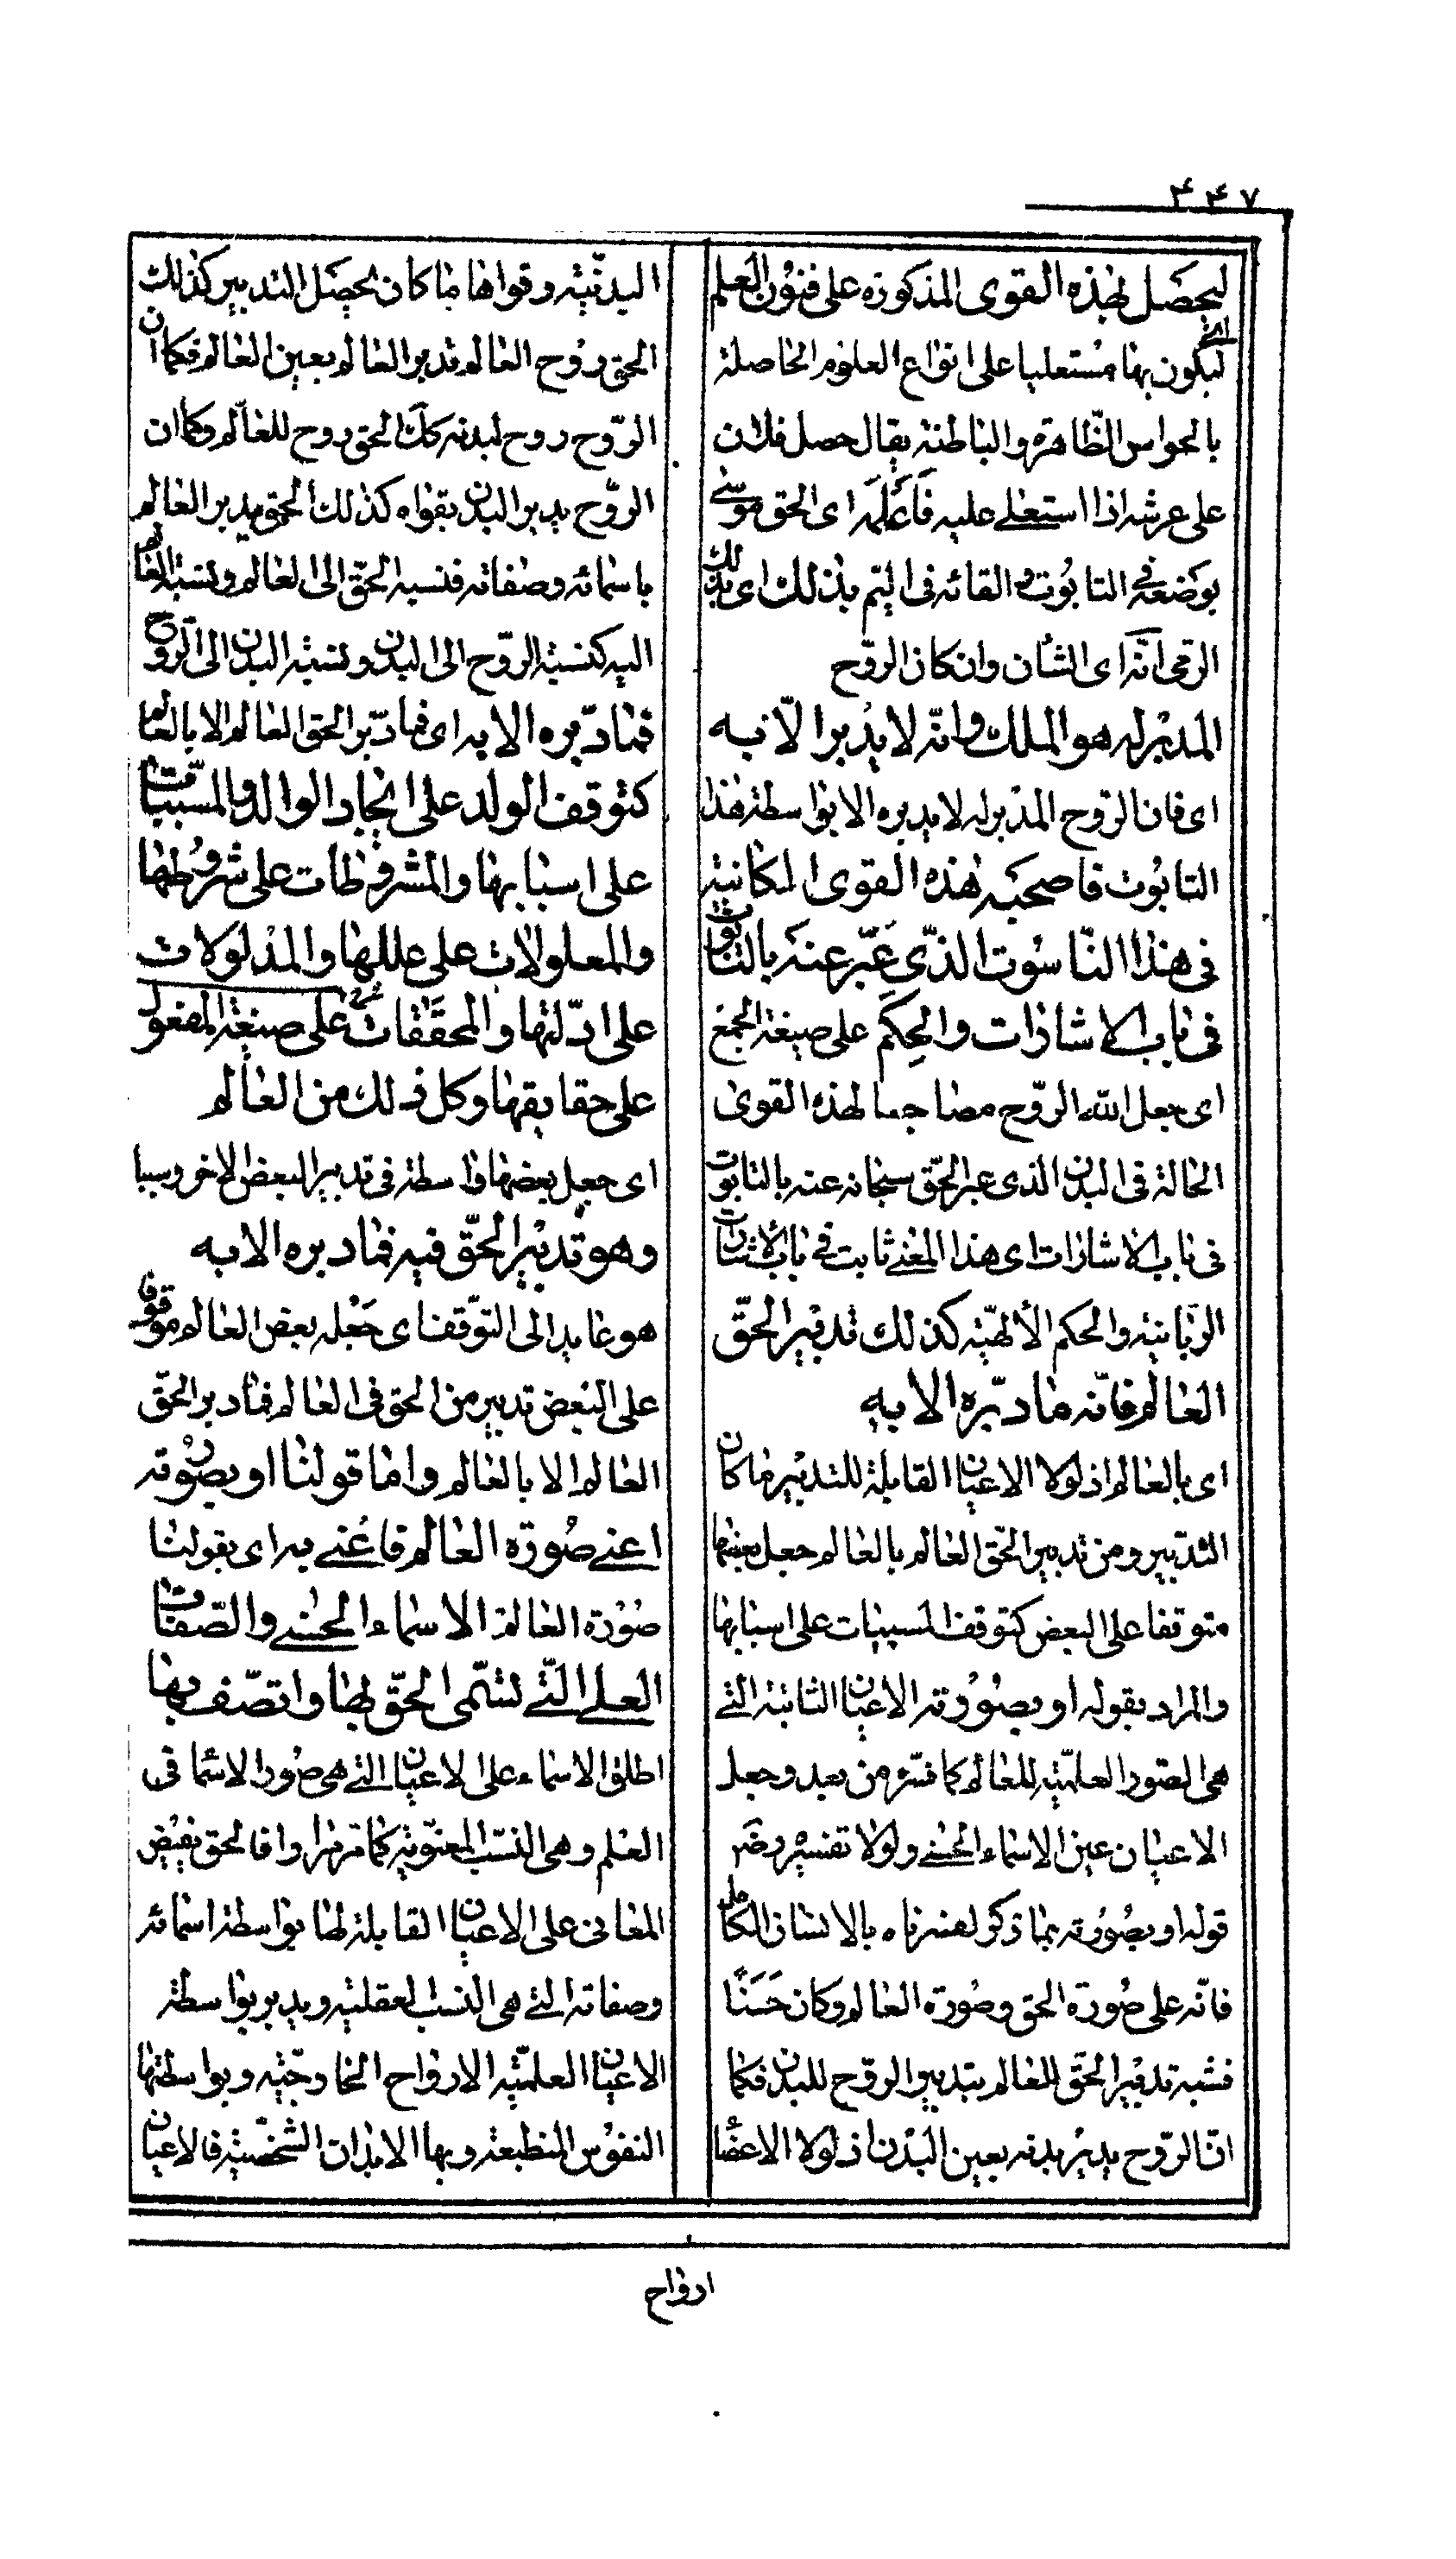 ۴۴۷
ليحصل بهذه القوى المذكورة على فنون العلم
اى ليكون بها مستعليا على انواع العلوم الحاصلة
بالحواس الظاهرة والباطنة يقال حصل فلان
على عرشه اذا استعلى عليه فاعلمه اى الحق موسى
بوضعه فى التابوت والقائه فى اليم بذلك اى بذلك
الرمى انه اى الشأن وان كان الروح
المدبر له هو الملك وانه لا يدبر الا به
اى فان الروح المدبر له لا يدبره الا بواسطة هذا
التابوت فاصحبه هذه القوى الكائنة
فى هذا الناسوت الذى عبر عنه بالتابوت
فى باب الاشارات والحكم على صيغة الجمع
اى جعل الله الروح مصاحبا لهذه القوى
الحالة فى البدن الذى عبر الحق سبحانه عنه بالتابوت
فى باب الاشارات اى هذا المعنى ثابت فى باب الاشارات
الربانية والحكم الالهية كذلك تدبير الحق
العالم فانه ما دبره الا به
اى بالعالم اذ لولا الاعيان القابلة للتدبير ما كان
التدبير ومن تدبير الحق العالم بالعالم جعل بعضها
متوقفا على البعض كتوقف المسببات على اسبابها
والمراد بقوله او بصورته الاعيان الثابتة التى
هى الصور العلمية للعالم كما فسره من بعد وجعل
الاعيان عين الاسماء الحسنى ولولا تفسيره رض
قوله او بصورته بما ذكر لفسرناه بالانسان الكامل
فانه على صورة الحق وصورة العالم وكان حسنا
فشبه تدبير الحق للعالم بتدبير الروح للبدن فكما
ان الروح يدبر بدنه بعين البدن اذ لولا الاعضا
البدنية وقواها ما كان يحصل التدبير كذلك
الحق روح العالم تدبر العالم بعين العالم فكما ان
الروح روح لبدنه كك الحق روح للعالم وكما ان
الروح يدبر البدن بقواه كذلك الحق يدبر العالم
باسمائه وصفاته فنسبة الحق الى العالم ونسبة العالم
اليه كنسبة الروح الى البدن ونسبة البدن الى الروح
فما دبره الا به اى فما دبر الحق العالم الا بالعالم
كتوقف الولد على ايجاد الوالد والمسببات
على اسبابها والمشروطات على شروطها
والمعلولات على عللها والمدلولات
على ادلتها والمحققات على صيغة المفعول
على حقايقها وكل ذلك من العالم
اى جعل بعضها واسطة فى تدبير البعض الاخر وسببا
وهو تدبير الحق فيه فما دبره الا به
هو عايد الى التوقف اى جعله بعض العالم موقوفا
على البعض تدبير من الحق فى العالم فما دبر الحق
العالم الا بالعالم واما قولنا او بصورته
اعنى صورة العالم فاعنى به اى بقولنا
صورة العالم الاسماء الحسنى والصفات
العلى التى تسمى الحق بها واتصف بها
اطلق الاسماء على الاعيان التى هى صور الاسما فى
العلم وهى النسب المعنوية كما مر مرارا فالحق يفيض
المعانى على الاعيان القابلة لها بواسطة اسمائه
وصفاته التى هى النسب العقلية ويدبر بواسطة
الاعيان العلمية الارواح الخارجية وبواسطتها
النفوس المنطبعة وبها الابدان الشخصية فالاعيان
ارواح